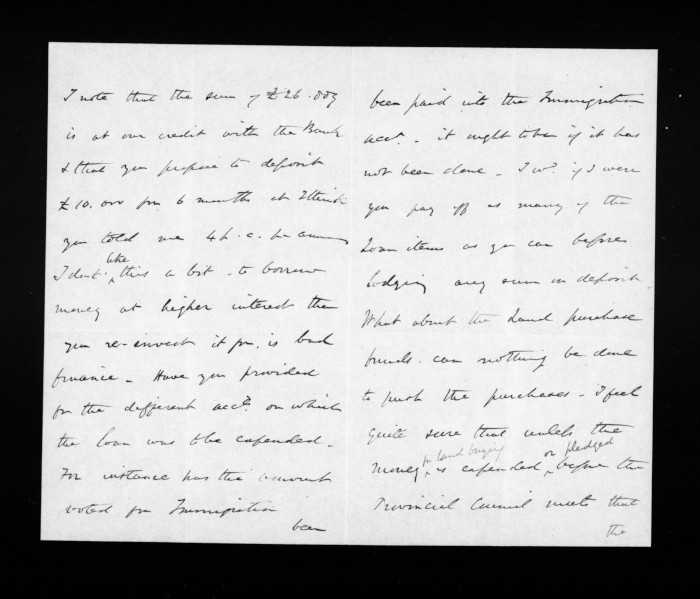 I note that the sum of £26.009
is at our credit with the Bank
& that you propose to deposit
£10.000 for 6 months at I think
you told me 4 p.c. per annum
I dont like this a bit - to borrow
money at higher interest than
you re-invest it for, is bad
finance - Have you provided
for the different acc.ts on which
the loan was to be expended -
For instance has the amount
voted for Immigration
been
been paid into the Immigration
acct. - it ought to be if it has
not been done - I wd. if I were
you pay off as many of the
Loan items as you can before
lodging any sum on deposit
What about the Land purchase
funds. can nothing be done
to push the purchases - I feel
quite sure that unless the
money for land buying is expended or pledged before the
Provincial Council meets that
the